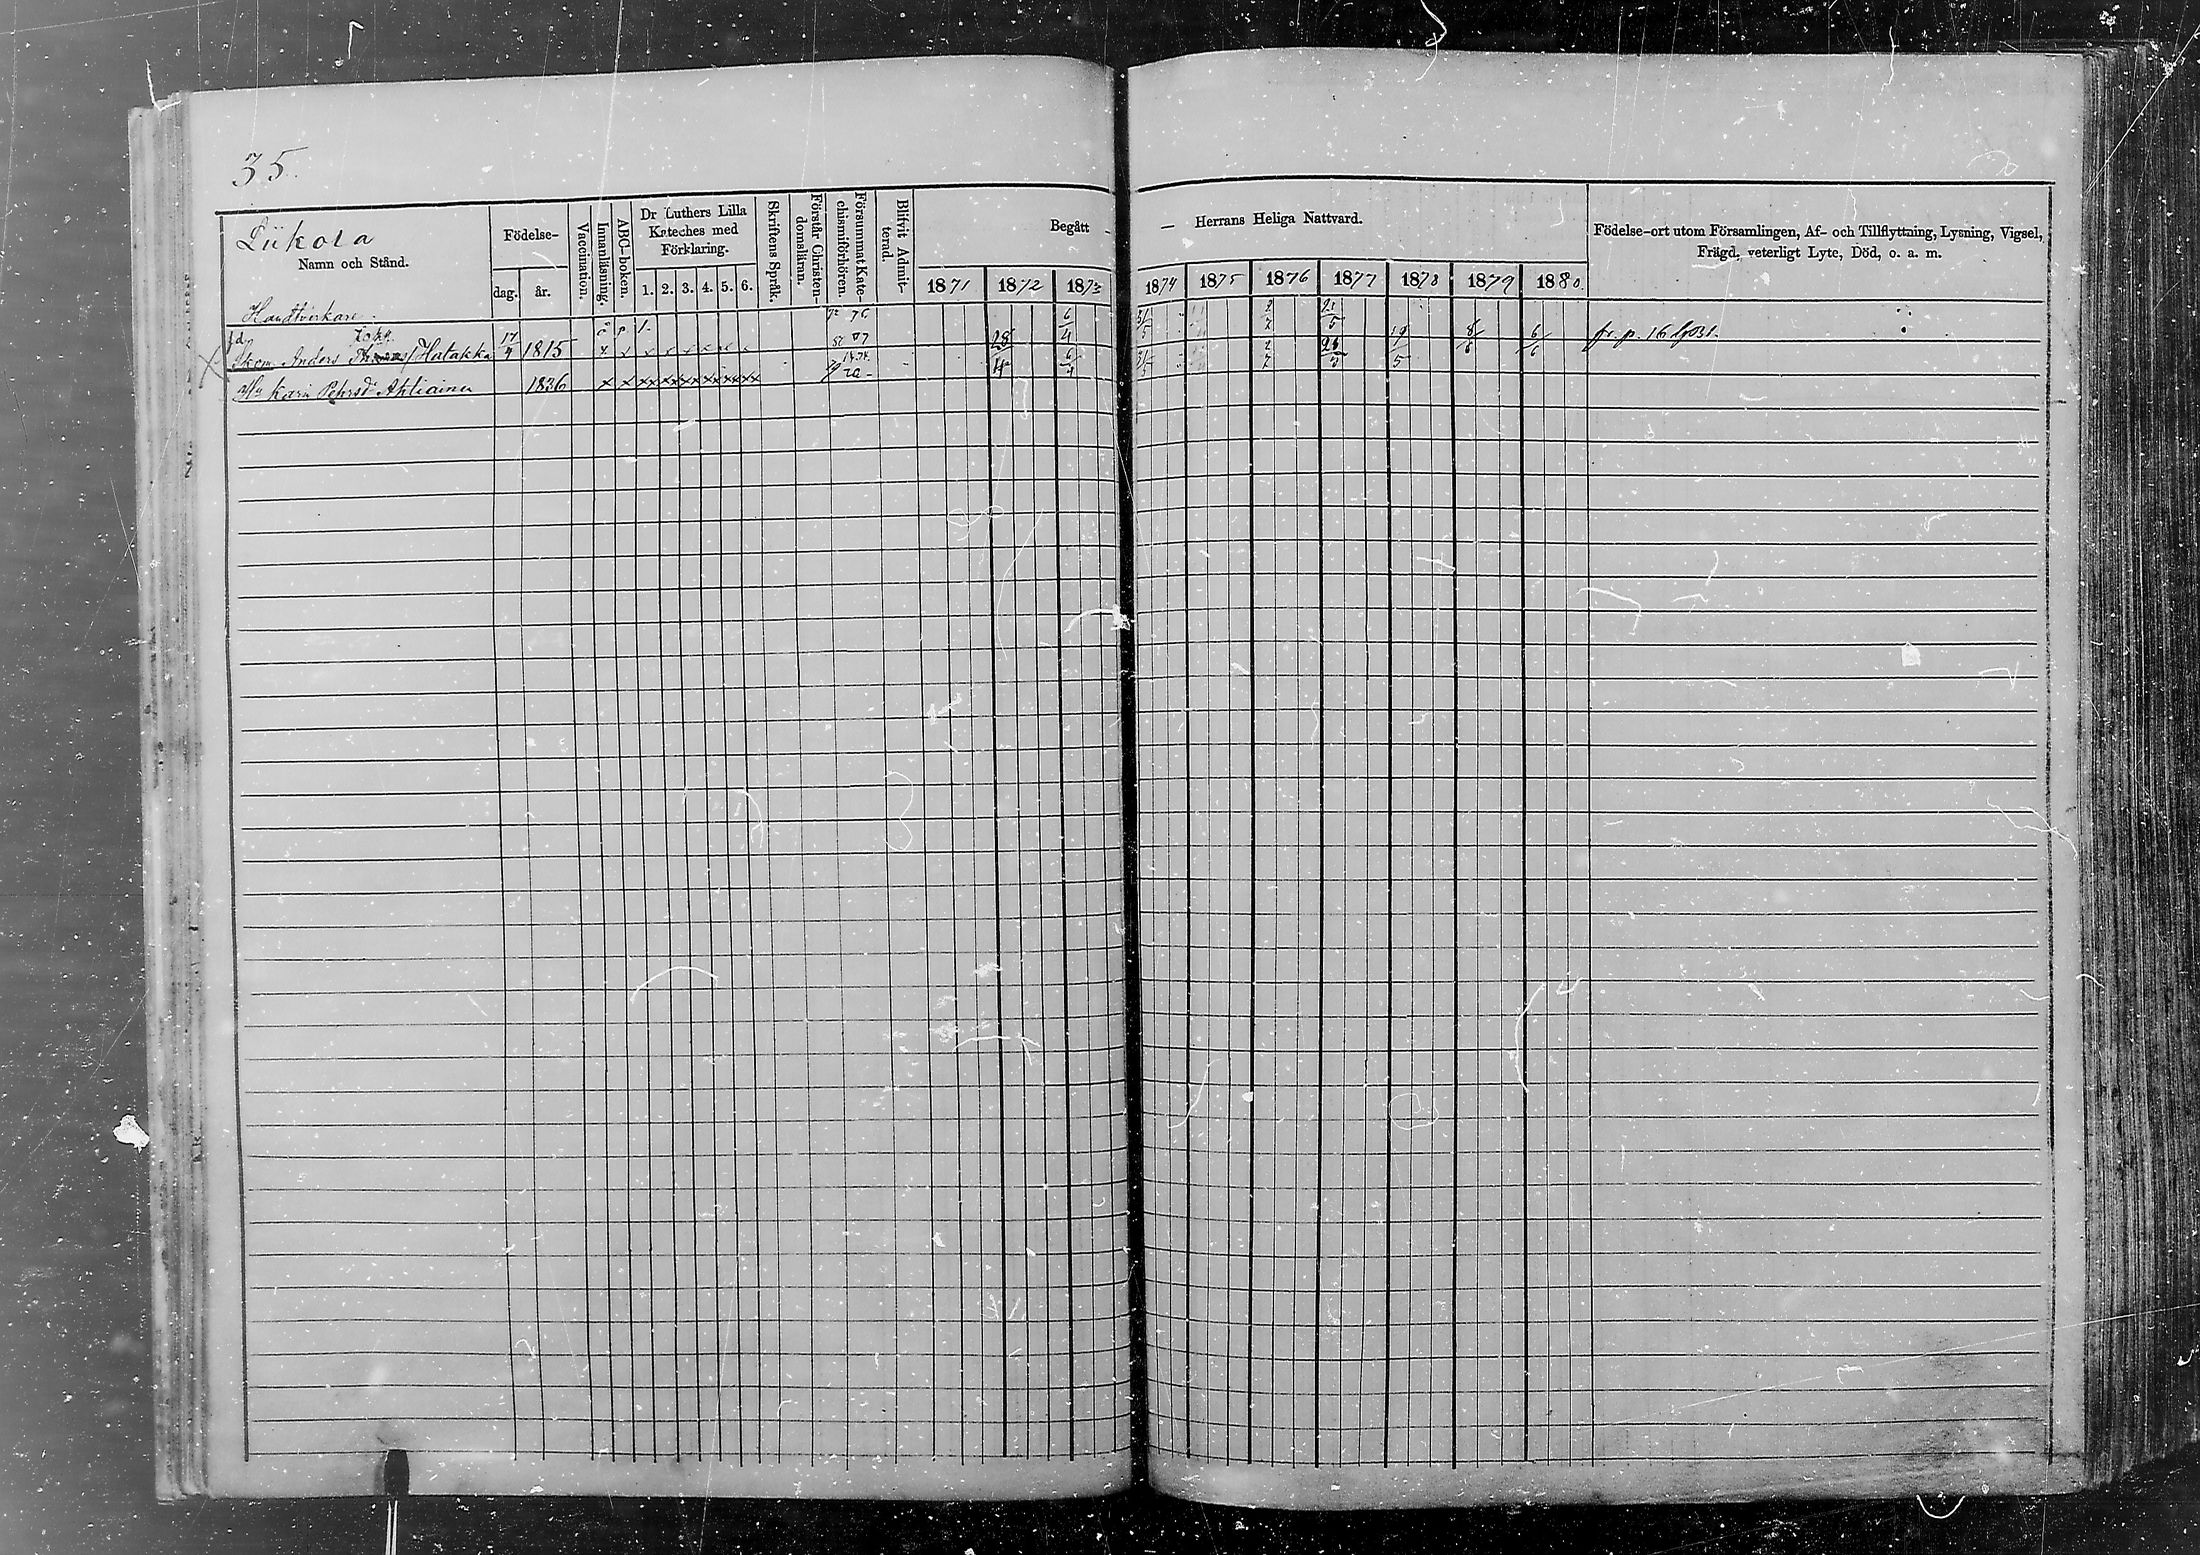 35.
Liikola
Namn och Stånd.
Födelse-
dag. år.
Vaccination.
Innanläsning.
ABC-boken.
Dr Luthers Lilla
Kateches med
Förklaring.
1. 2. 3. 4. 5. 6.
Skriftens Språk.
Förstår Christen-
domsläran.
Försummat Kate-
chismiförhören.
Blifvit Admit-
terad.
Begått — Herrans Heliga Nattvard.
1871 1872 1873 1874 1875 1876 1877 1878 1879 1880.
Födelse-ort utom Församlingen, Af- och Tillflyttning, Lysning, Vigsel,
Frägd, veterligt Lyte, Död, o. a. m.
Handtverkare.
Skom. Anders Hatakka 17/4 1815 fr. p. 16
Hu Karin Pehrsdr Ahtiainen 1836